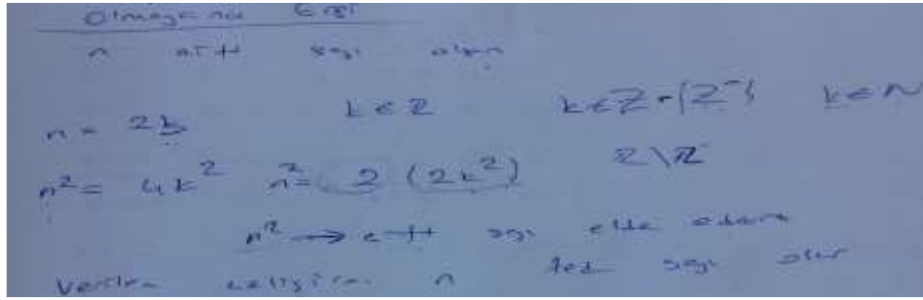 Olmayana Ergi
n çift sayı olsun
n = 2k k ∈ Z k ∈ Z - {Z⁻} k ∈ N
n² = 4k² n² = 2 (2k²) Z \ Z
n² → çift sayı elde ederiz
Verilen çelişir. n tek sayı olur